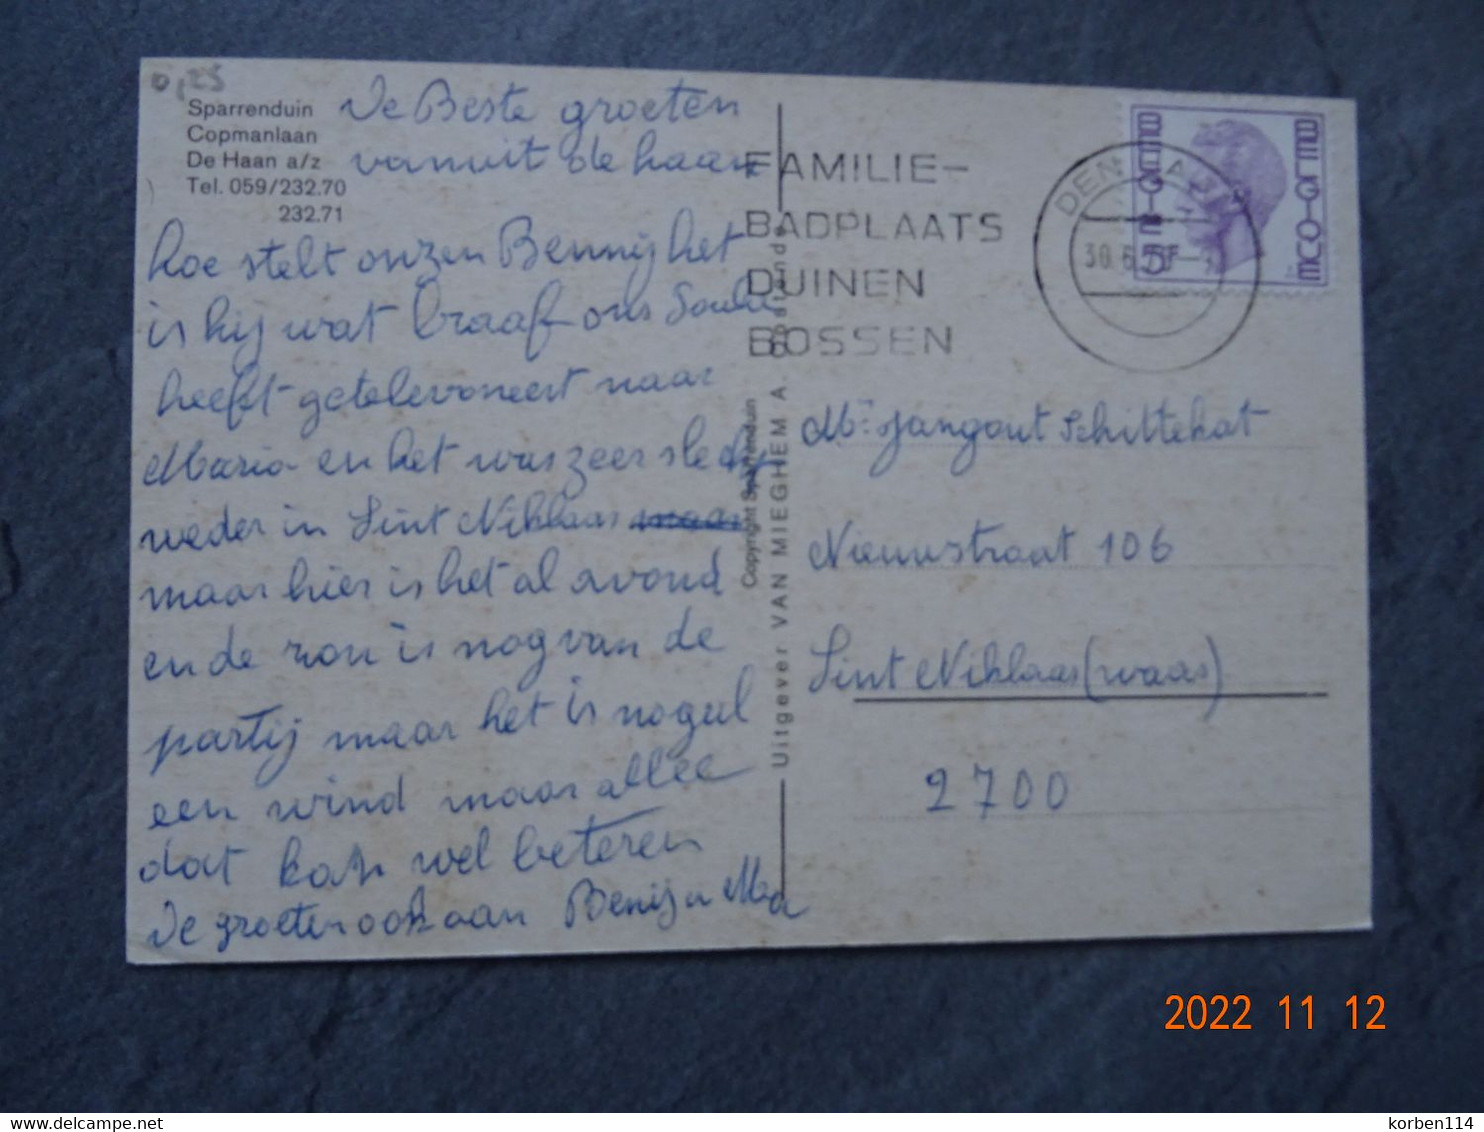 0,25
Sparrenduin
Copmanlaan
De Haan a/z
Tel. 059/232.70
232.71
De Beste groeten
vanuit de haan
hoe stelt onzen Bennij het
is hij wat braaf ons
heeft getelevoneert naar
Maria en het was zeer slecht
weder in Sint Niklaas maar
maar hier is het al avond
en de zon is nog van de
partij maar het is nogeel
een wind maar allee
dat kan wel beteren
De groeten ook aan Benij
Copyright Sparrenduin
Uitgever VAN MIEGHEM A. Oostende
FAMILIE-
BADPLAATS
DUINEN
BOSSEN
DEN HAAN
30.6
BELGIE 5F BELGIQUE
Mr Schittekat
Nieuwstraat 106
Sint Niklaas (waas)
2700
2022 11 12
korben114